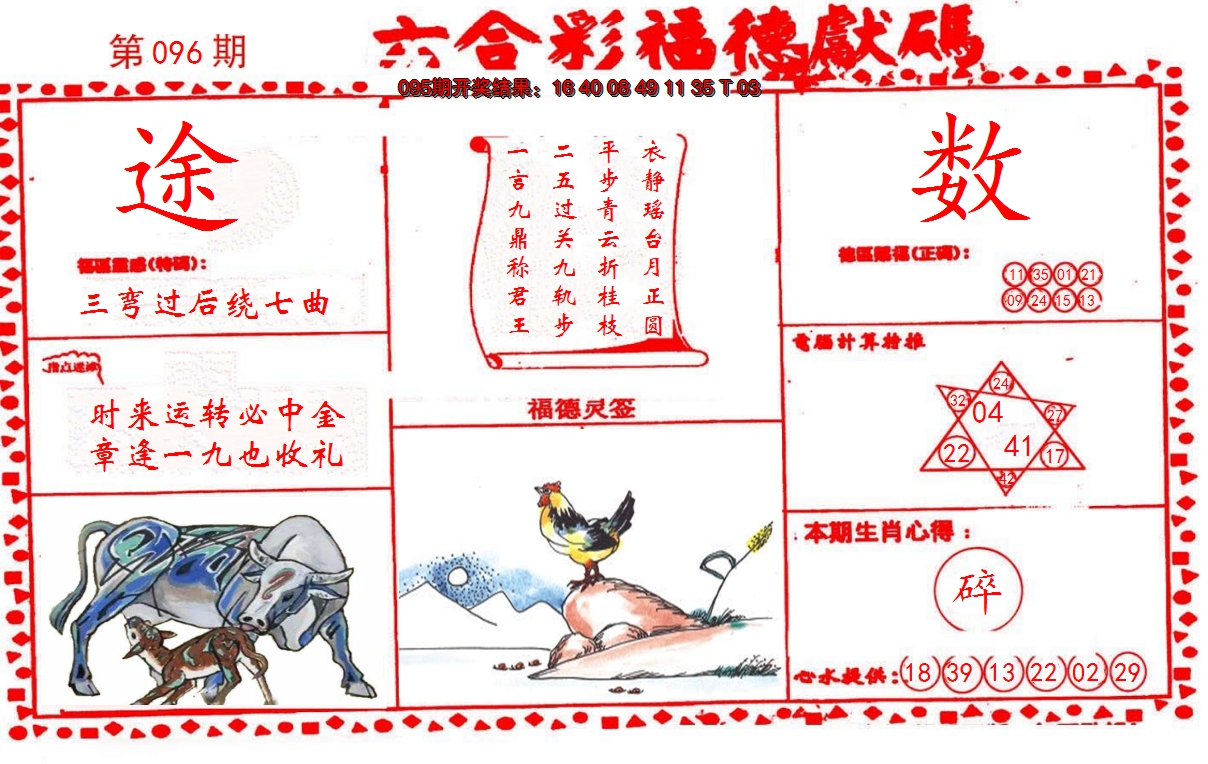 第096期
六合彩福德獻碼
095期开奖结果：16 40 08 49 11 35 T 03
途
福區靈感(特碼)：
三弯过后绕七曲
指点迷津
时来运转必中金
章逢一九也收礼
衣静瑶台月正圆
平步青云折桂枝
二五过关九轨步
一言九鼎称君王
福德灵签
数
德區賜福(正碼)：
11 35 01 21
09 24 15 13
電腦計算推
24
32 04 27
22 41 17
42
本期生肖心得：
碎
心水提供：18 39 13 22 02 29